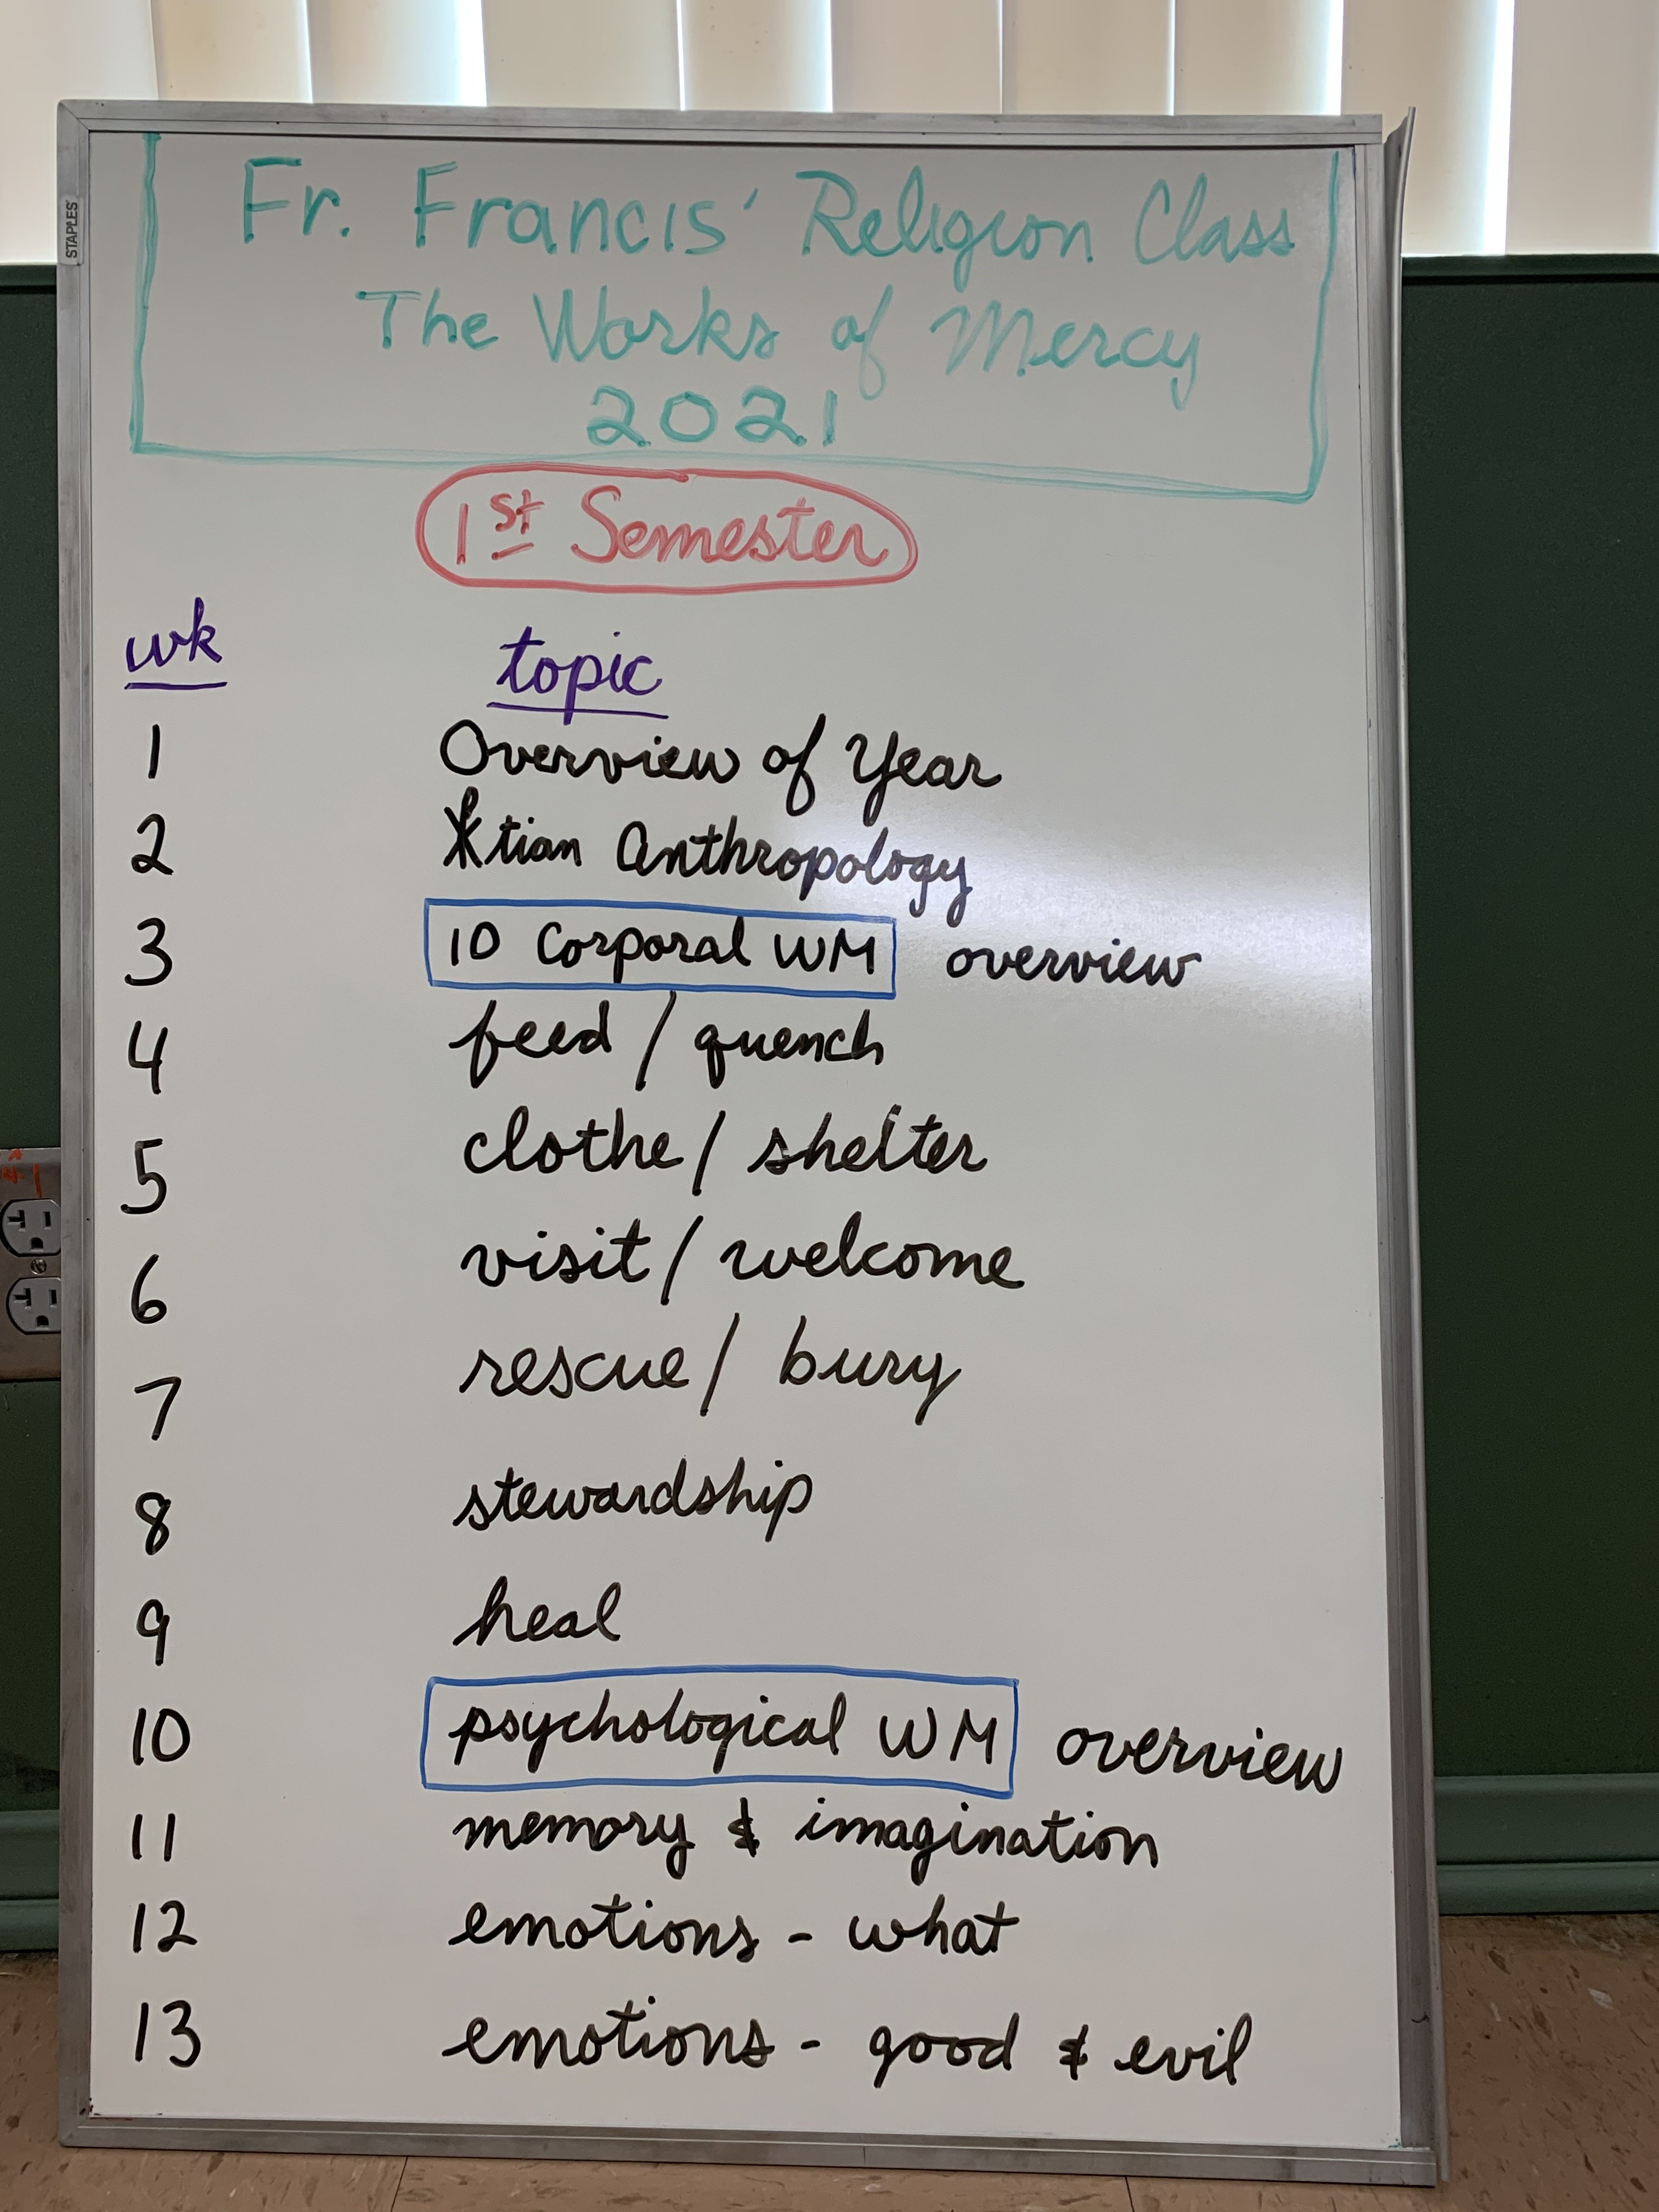 STAPLES
Fr. Francis' Religion Class
The Works of Mercy
2021
1st Semester
wk topic
1 Overview of Year
2 Xtian Anthropology
3 10 Corporal WM overview
4 feed / quench
5 clothe / shelter
6 visit / welcome
7 rescue / bury
8 stewardship
9 heal
10 psychological WM overview
11 memory & imagination
12 emotions - what
13 emotions - good & evil